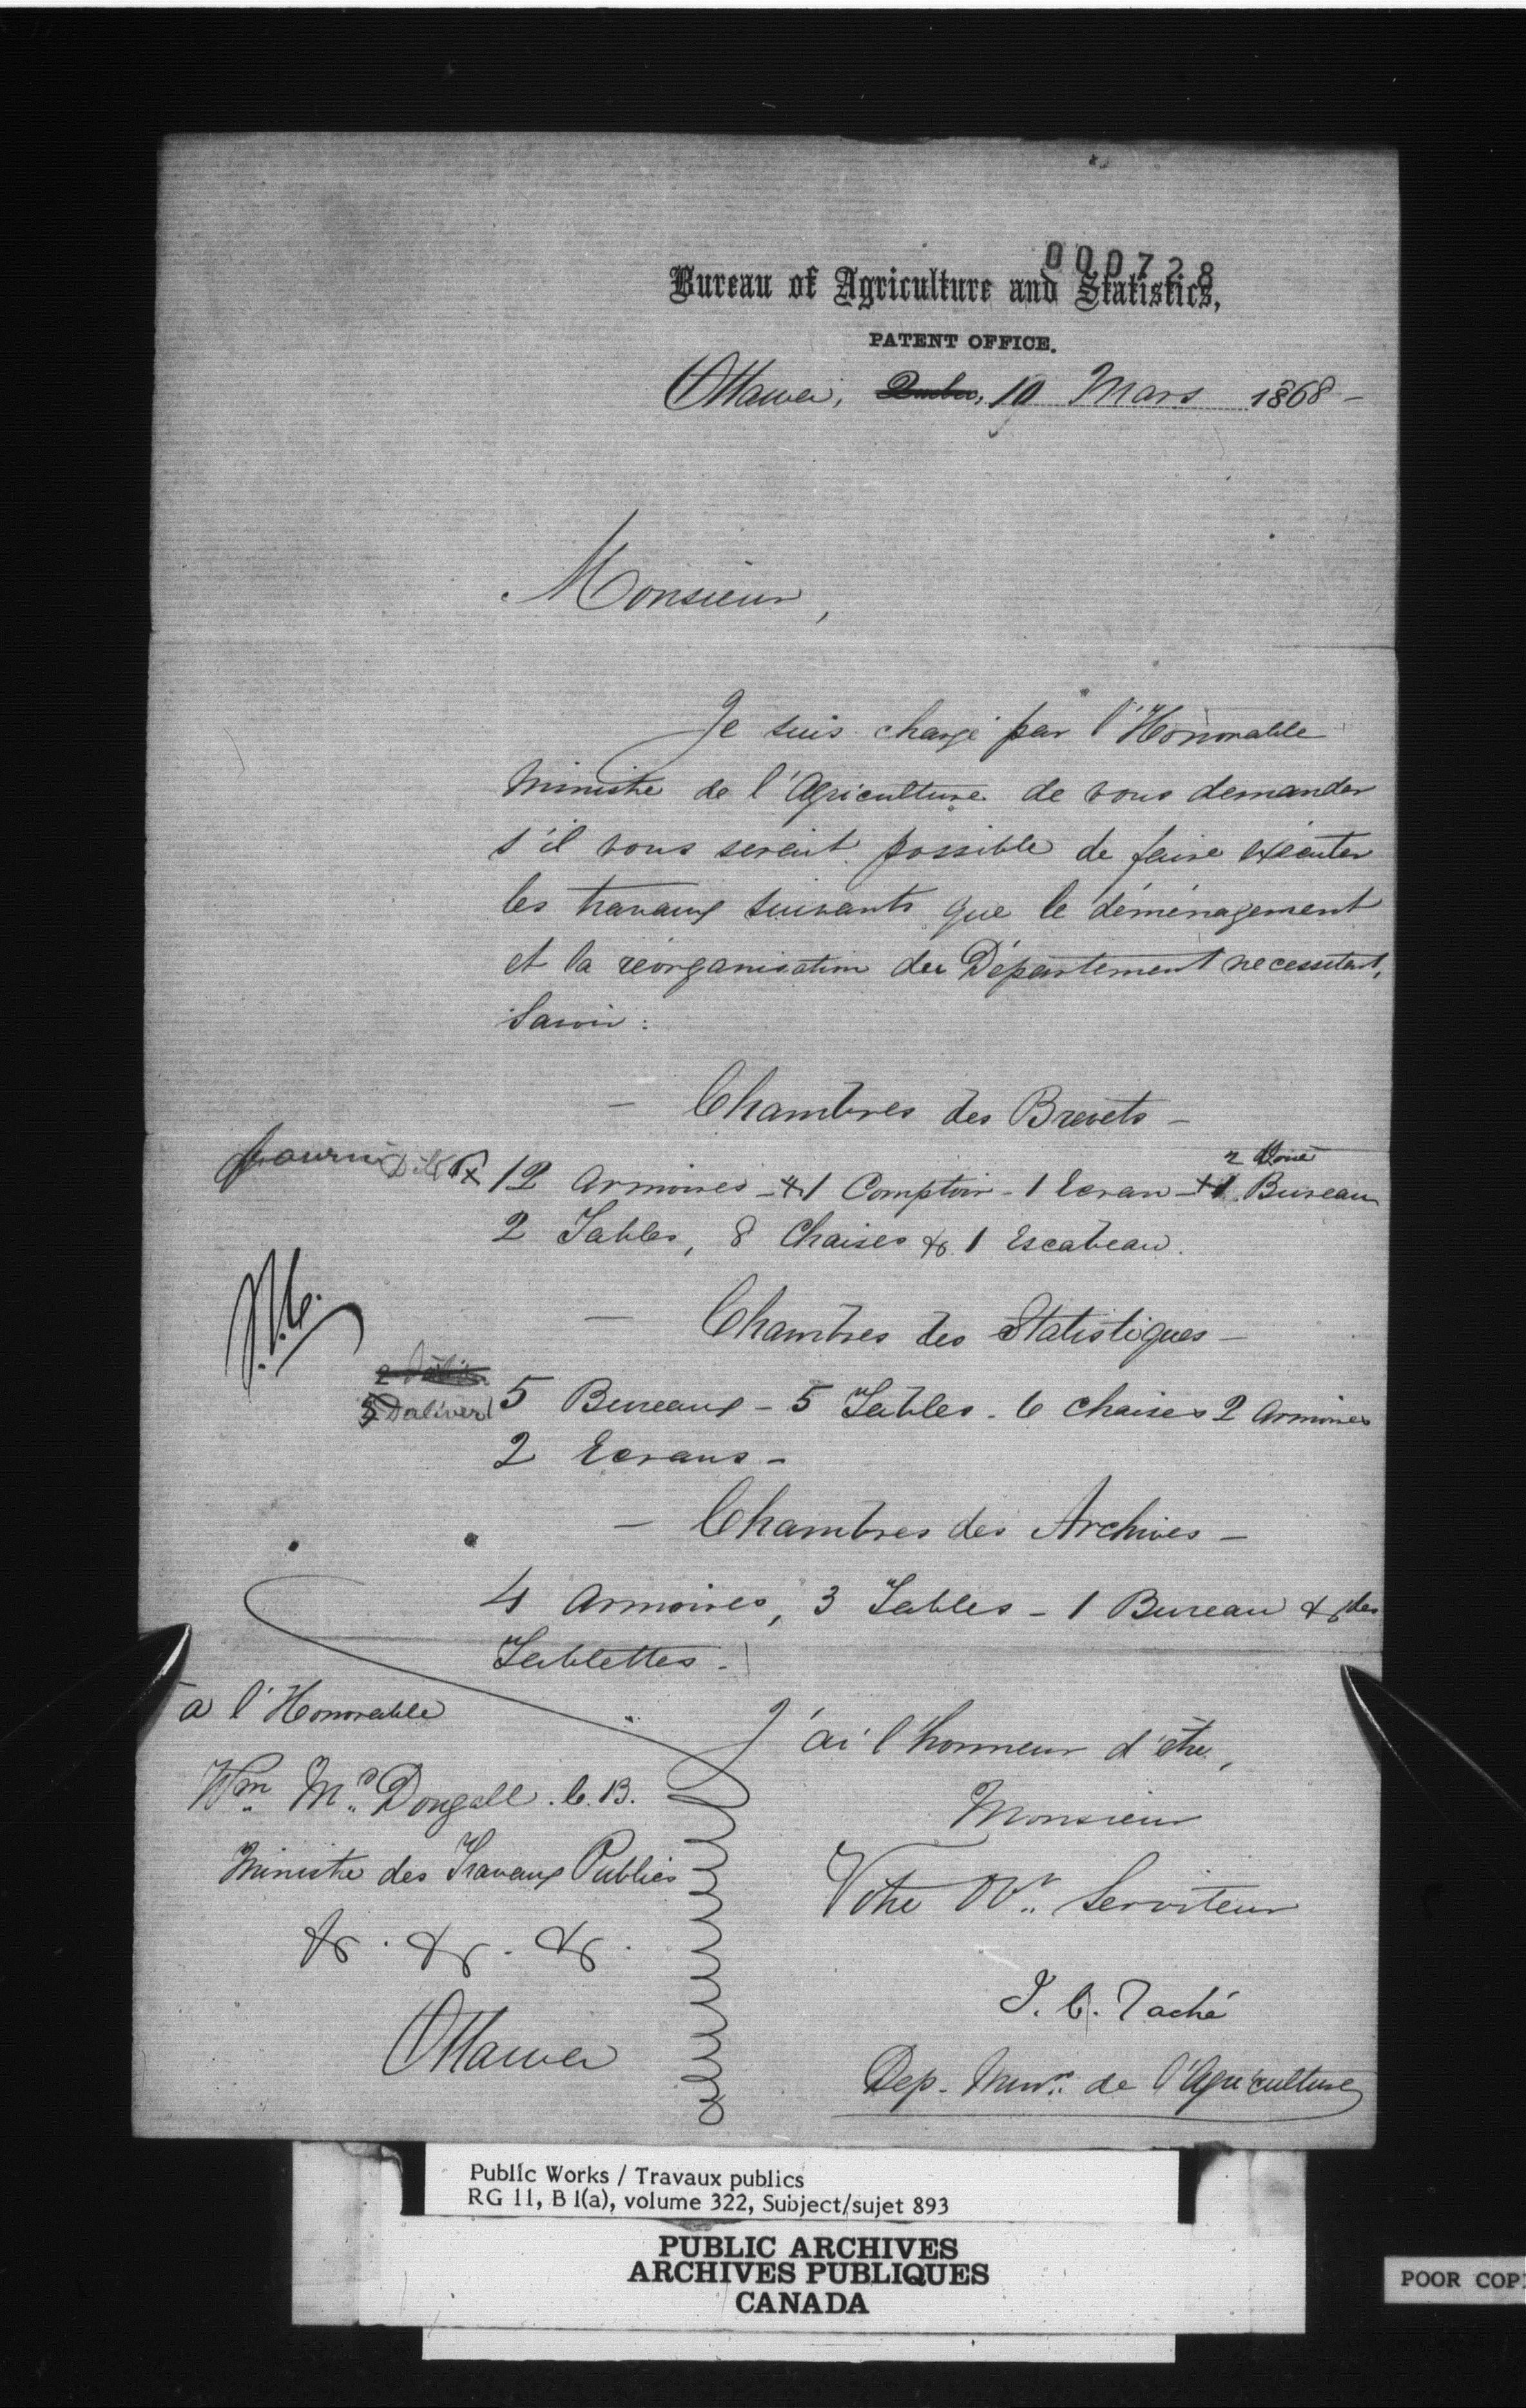 000728
Bureau of Agriculture and Statistics,
PATENT OFFICE.
Ottawa, Quebec, 10 Mars 1868 -
Monsieur,
Je suis chargé par l'Honorable
Ministre de l'Agriculture de vous demander
s'il vous serait possible de faire exécuter
les travaux suivants que le déménagement
et la réorganisation du Département necessitent,
Savoir :
- Chambres des Brevets -
2 Done
fourni 12 Armoires - 1 Comptoir - 1 Ecran - 1 Bureau
2 Tables, 8 Chaises & 1 Escabeau.
- Chambres des Statistiques -
Deliver 5 Bureaux - 5 Tables - 6 Chaises 2 Armoires
2 Ecrans -
- Chambres des Archives -
4 Armoires, 3 Tables - 1 Bureau & des
Tablettes.
J'ai l'honneur d'être,
Monsieur
Votre Obt. Serviteur
J. C. Taché
Dep. Minr. de l'Agriculture
à l'Honorable
Wm. McDougall. C. B.
Ministre des Travaux Publics
&c. &c. &c.
Ottawa
Public Works / Travaux publics
RG 11, B 1(a), volume 322, Subject/sujet 893
PUBLIC ARCHIVES
ARCHIVES PUBLIQUES
CANADA
POOR COP